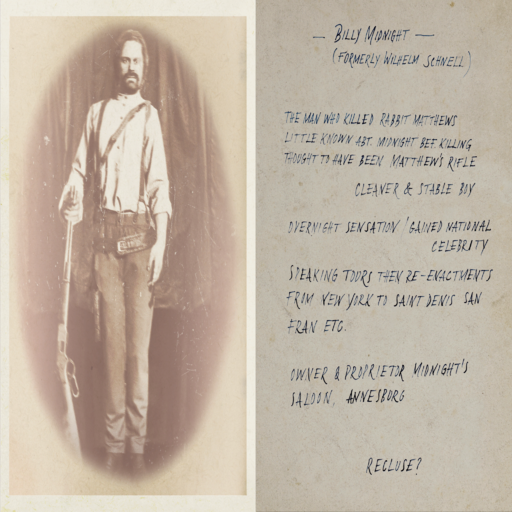 — BILLY MIDNIGHT —
(FORMERLY WILHELM SCHNELL)
THE MAN WHO KILLED RABBIT MATTHEWS
LITTLE KNOWN ABT. MIDNIGHT BEF. KILLING
THOUGHT TO HAVE BEEN MATTHEW'S RIFLE
CLEANER & STABLE BOY
OVERNIGHT SENSATION 'GAINED NATIONAL
CELEBRITY
SPEAKING TOURS THEN RE-ENACTMENTS
FROM NEW YORK TO SAINT DENIS SAN
FRAN ETC.
OWNER & PROPRIETOR MIDNIGHT'S
SALOON, ANNESBURG
RECLUSE?